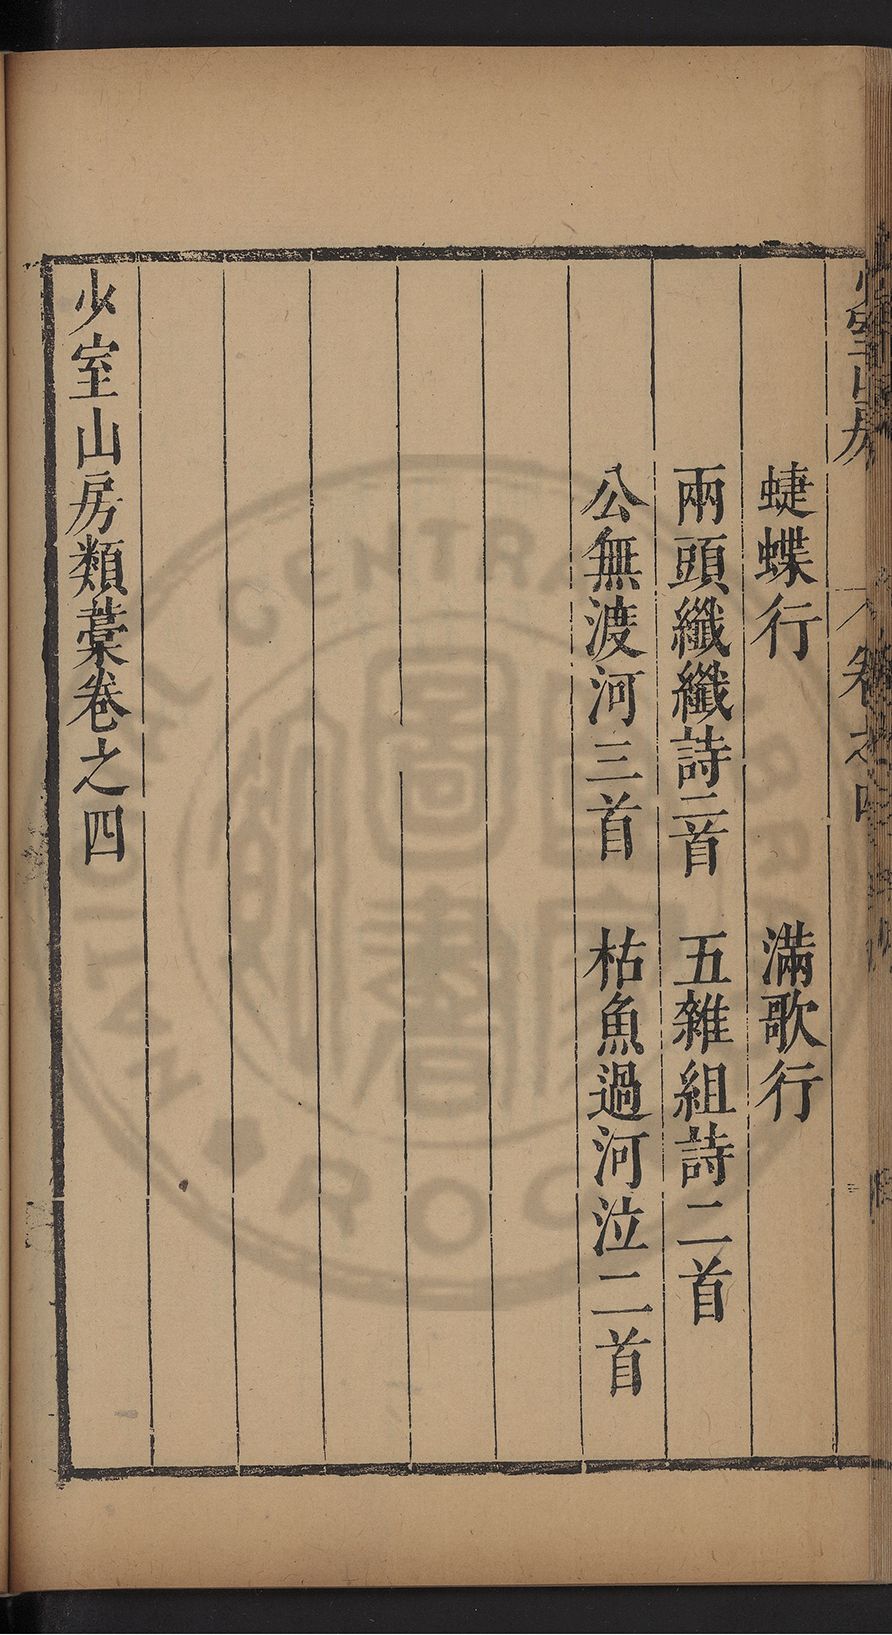 蜨蝶行　滿歌行
兩頭纖纖詩二首　五雜組詩二首
公無渡河三首　枯魚過河泣二首
少室山房類藁卷之四